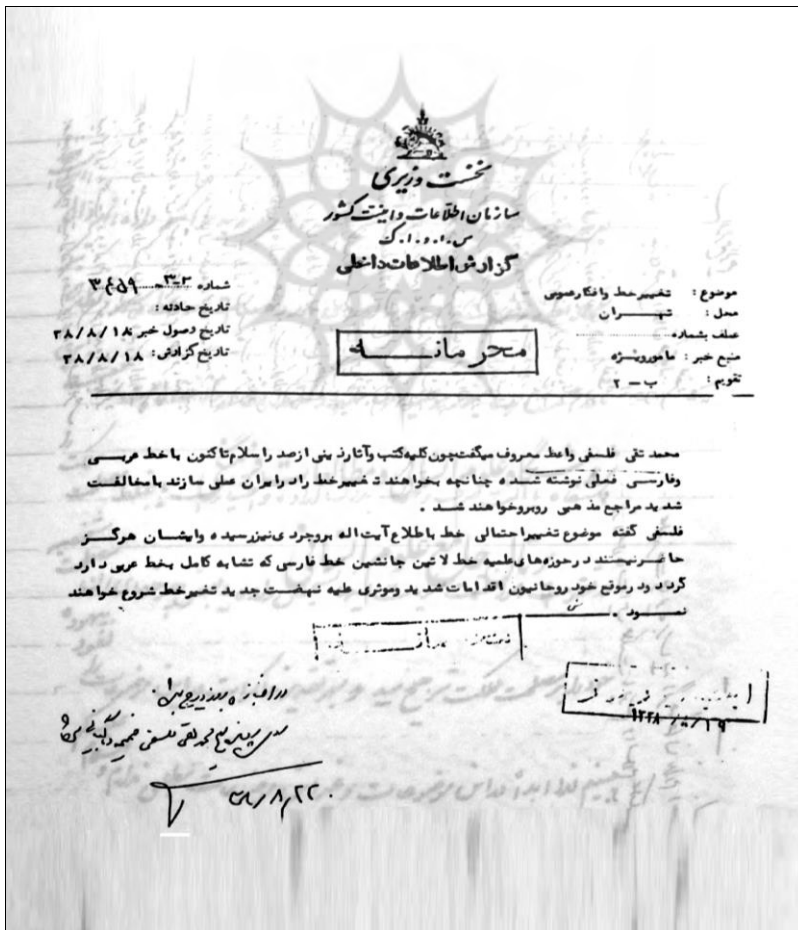 نخست وزیری
سازمان اطلاعات و امنیت کشور
س.ا.و.ا.ک
گزارش اطلاعات داخلی
موضوع : تغییر خط و افکار عمومی
محل : تهران
عطف بشماره
منبع خبر : مامور ویژه
تقویم : ب - ۲
محرمانه
شماره ۳-۳ ۳۴۵۹
تاریخ حادثه :
تاریخ وصول خبر ۳۸/۸/۱۸
تاریخ گزارش: ۳۸/۸/۱۸
محمد تقی فلسفی واعظ معروف میگفت چون کلیه کتب و آثار دینی از صدر اسلام تاکنون با خط عربی
و فارسی فعلی نوشته شده چنانچه بخواهند تغییر خط را در ایران عملی سازند با مخالفت
شدید مراجع مذهبی روبرو خواهند شد .
فلسفی گفته موضوع تغییر احتمالی خط باطلاع آیت اله بروجردی نیز رسیده و ایشان هرگز
حاضر نیستند در حوزه های علمیه خط لاتین جانشین خط فارسی که تشابه کامل بخط عربی دارد
گردد و در موقع خود روحانیون اقدامات شدید و موثری علیه نهضت جدید تغییر خط شروع خواهند
نمود .
۱۳۳۸/۸/۱۹
۳۸/۸/۲۲